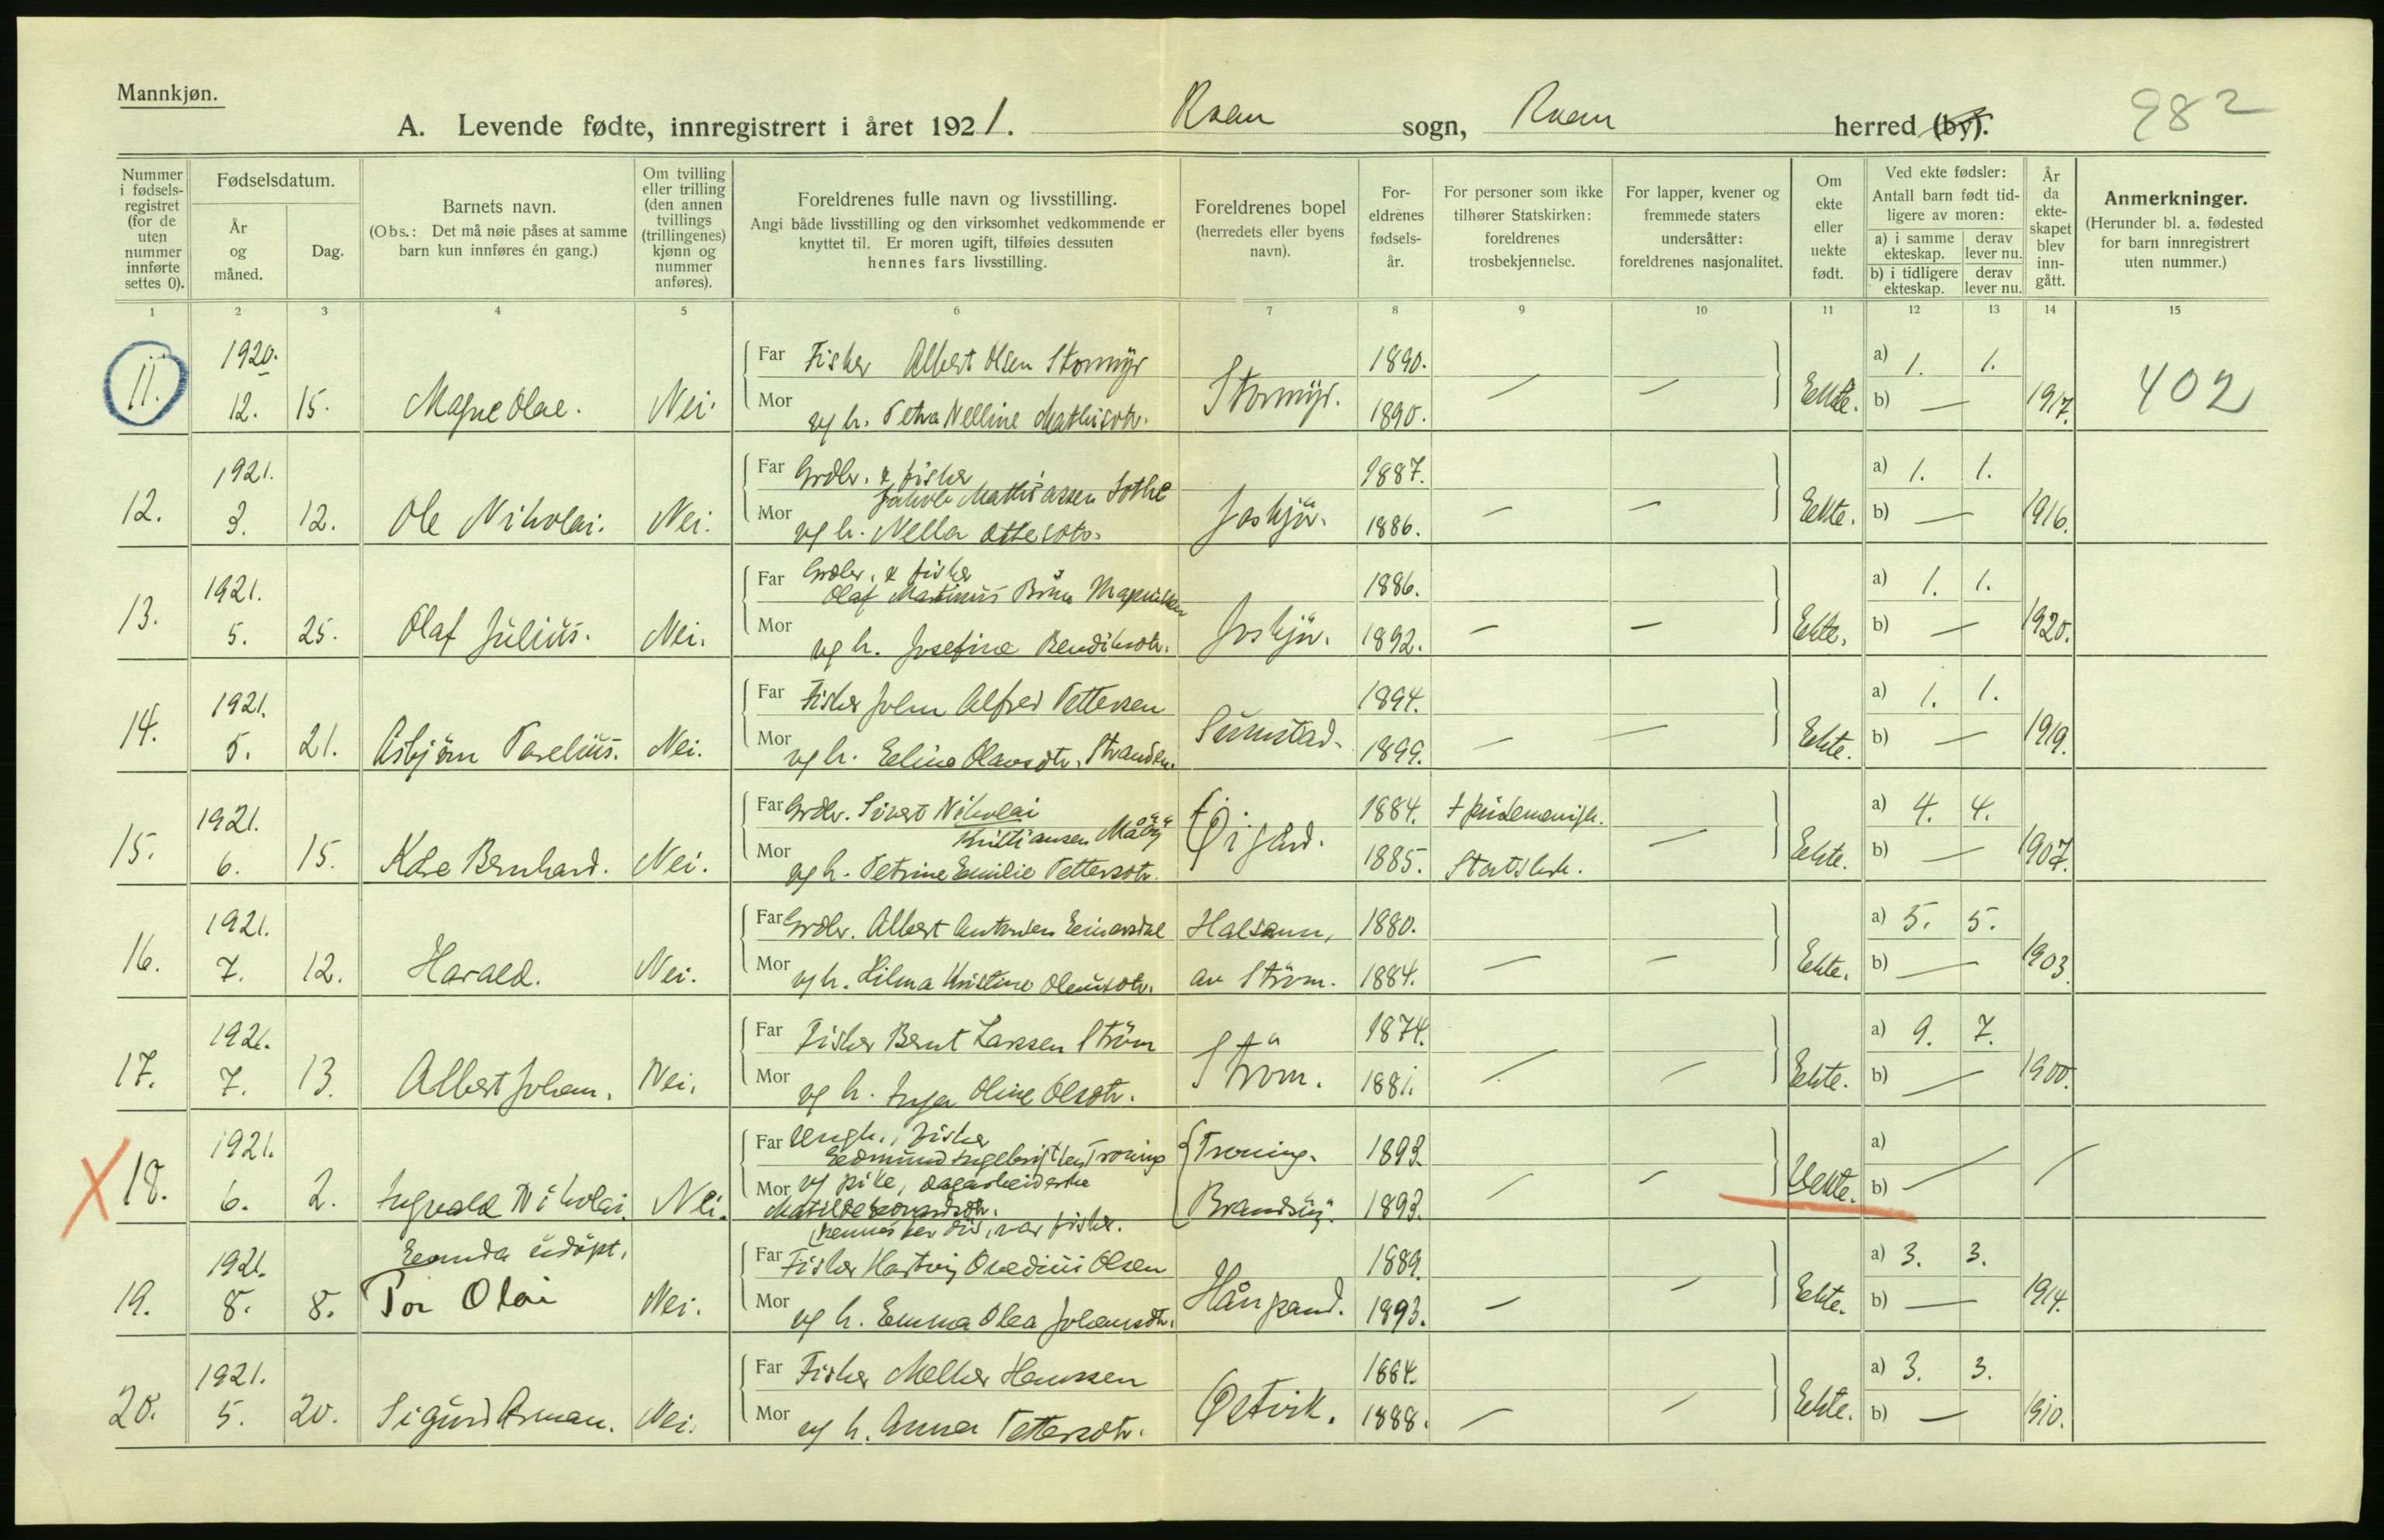 Mannkjøn.
A. Levende fødte, innregistrert i året 1921. Roan sogn, Roan herred (by). 982
Nummer i fødselsregistret (for de uten nummer innførte settes 0).
Fødselsdatum.
År og måned.
Dag.
Barnets navn.
(Obs.: Det må nøie påses at samme barn kun innføres én gang.)
Om tvilling eller trilling (den annen tvillings (trillingenes) kjønn og nummer anføres).
Foreldrenes fulle navn og livsstilling.
Angi både livsstilling og den virksomhet vedkommende er knyttet til. Er moren ugift, tilføies dessuten hennes fars livsstilling.
Foreldrenes bopel (herredets eller byens navn).
Foreldrenes fødselsår.
For personer som ikke tilhører Statskirken: foreldrenes trosbekjennelse.
For lapper, kvener og fremmede staters undersåtter: foreldrenes nasjonalitet.
Om ekte eller uekte født.
Ved ekte fødsler:
Antall barn født tidligere av moren:
a) i samme ekteskap.
derav lever nu.
b) i tidligere ekteskap.
derav lever nu.
År da ekteskapet blev inngått.
Anmerkninger.
(Herunder bl. a. fødested for barn innregistrert uten nummer.)
1 2 3 4 5 6 7 8 9 10 11 12 13 14 15
11. 1920. 12. 15. Magne Olae. Nei.
Far Fisker Albert Olsen Stormyr 1890. a) 1. 1.
Mor og h. Petra Nelline Mathisdtr. Stormyr. 1890. — — Ekte. b) — 1917. 402
12. 1921. 3. 12. Ole Nikolai. Nei.
Far Grdbr. & fisker
Jakob Mathiassen Sothe 1887. a) 1. 1.
Mor og h. Nella Ottesdtr. Joskjör. 1886. — — Ekte. b) — 1916.
13. 1921. 5. 25. Olaf Julius. Nei.
Far Grdbr. & fisker
Olaf Martinus Magnussen 1886. a) 1. 1.
Mor og h. Josefine Bendiksdtr. Joskjör. 1892. — — Ekte. b) — 1920.
14. 1921. 5. 21. Asbjörn Parelius. Nei.
Far Fisker John Alfred Pettersen 1894. a) 1. 1.
Mor og h. Eline Olavsdtr. Stranden. Sumstad. 1899. — — Ekte. b) — 1919.
15. 1921. 6. 15. Kåre Bernhard. Nei.
Far Grdbr. Sivert Nikolai
Kristiansen 1884. a) 4. 4.
Mor og h. Petrine Emilie Pettersdtr. Öigård. 1885. Statsk. — Ekte. b) — 1907.
16. 1921. 7. 12. Harald. Nei.
Far Grdbr. Albert Antonsen Einarsdal 1880. a) 5. 5.
Mor og h. Hilma Kristine Olausdtr. av Ström. 1884. — — Ekte. b) — 1903.
17. 1921. 7. 13. Albert Johan. Nei.
Far Fisker Bernt Larssen Ström 1874. a) 9. 7.
Mor og h. Inga Oline Olsdtr. Ström. 1881. — — Ekte. b) — 1900.
X 18. 1921. 6. 2. Ingvald Nikolai. Nei.
Far Ungk., fisker
Edmund Ingebrigtsen Troning Troning. 1893. a) —
Mor og pike, dagarbeiderske
Matilde Edvardsdtr. Brandsöy. 1893. — — Uekte. b) —
(hennes far dös, var fisker.
19. 1921. 8. 8. Ennda udöpt.
Tor Olai Nei.
Far Fisker Hartvig Ovedius Olsen 1889. a) 3. 3.
Mor og h. Emma Olea Johansdtr. 1893. — — Ekte. b) — 1914.
20. 1921. 5. 20. Sigurd Arman. Nei.
Far Fisker Melker Hanssen 1884. a) 3. 3.
Mor og h. Anna Pettersdtr. Östvik. 1888. — — Ekte. b) — 1910.